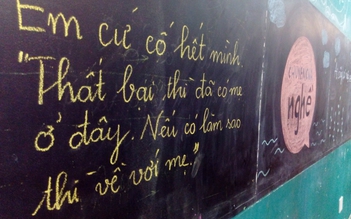 Em cứ cố hết mình
"Thất bại thì đã có mẹ
ở đây. Nếu có làm sao
thì về với mẹ."
nghề